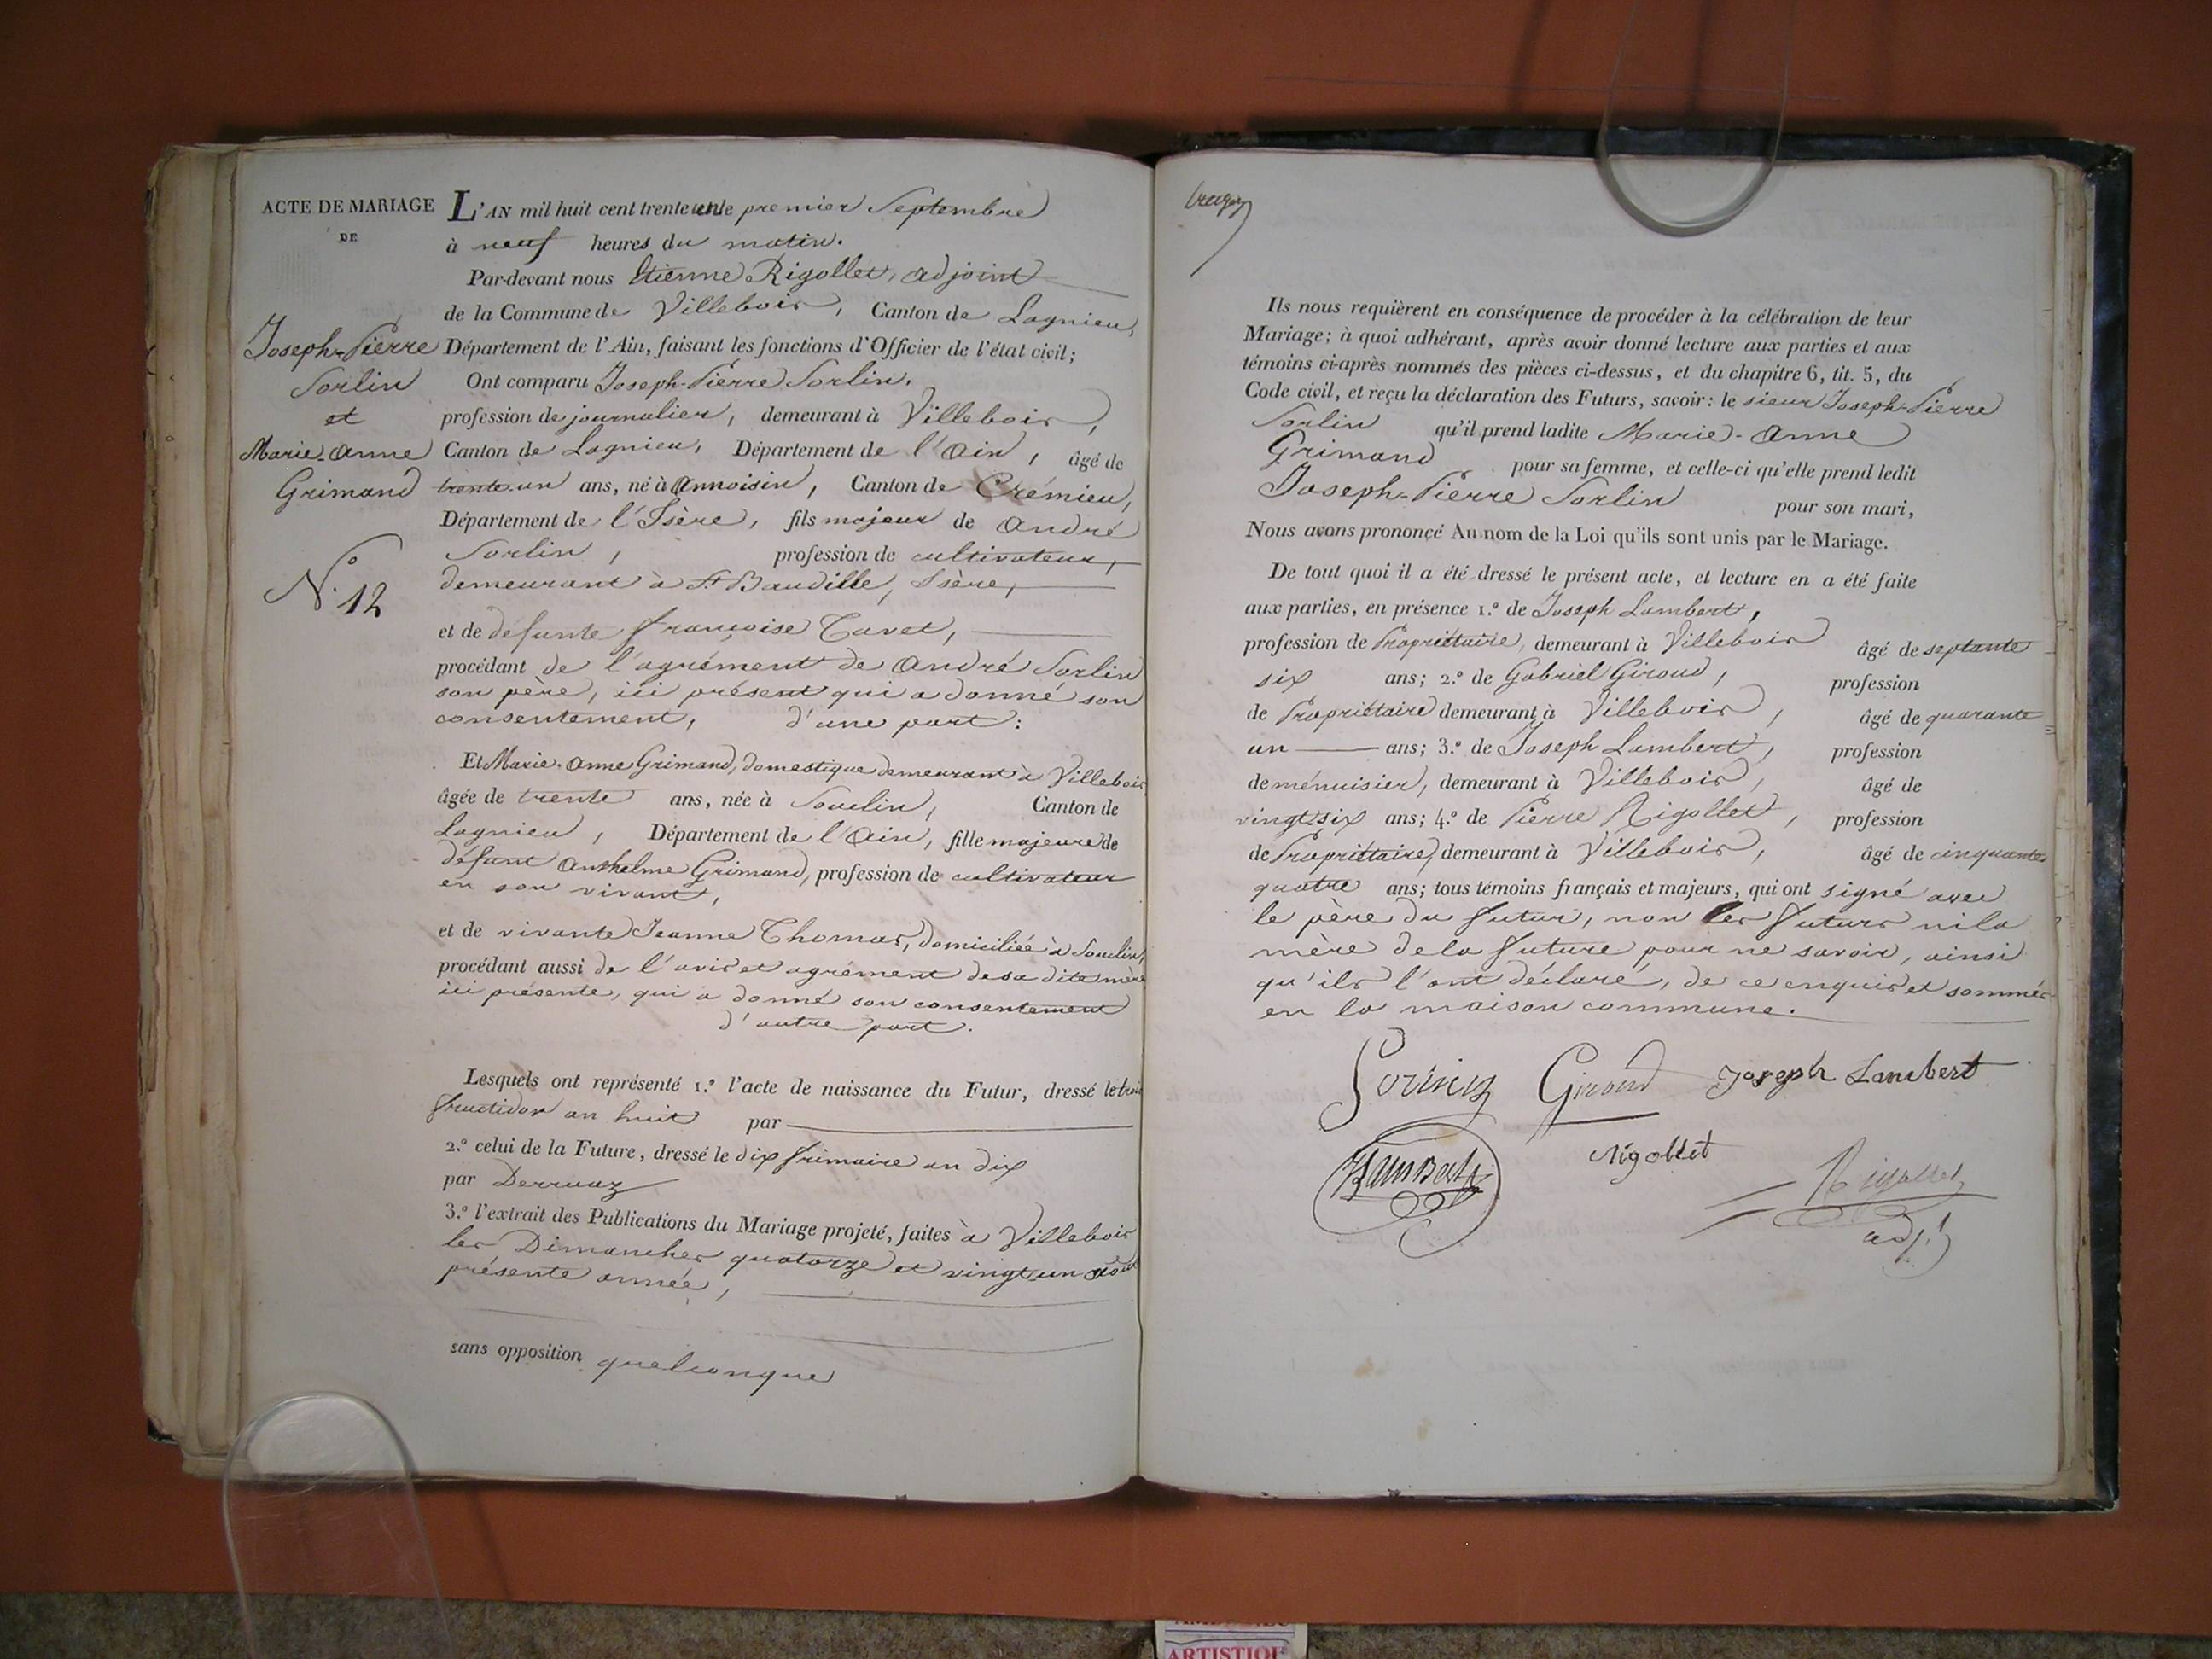 ACTE DE MARIAGE
DE
Joseph-Pierre
Sorlin
et
Marie-Anne
Grimand
N.º 12
L'AN mil huit cent trente un le premier Septembre
à neuf heures du matin.
Par-devant nous Etienne Rigollet, adjoint
de la Commune de Villebois, Canton de Lagnieu,
Département de l'Ain, faisant les fonctions d'Officier de l'état civil;
Ont comparu Joseph-Pierre Sorlin.
profession de journalier, demeurant à Villebois,
Canton de Lagnieu, Département de l'Ain, âgé de
trente-un ans, né à Annoisin, Canton de Crémieu,
Département de l'Isère, fils majeur de André
Sorlin, profession de cultivateur,
demeurant à St Baudille, Isère,
et de défunte françoise Cavet,
procédant de l'agrément de André Sorlin
son père, ici présent qui a donné son
consentement, d'une part:
Et Marie-Anne Grimand, domestique demeurant à Villebois
âgée de trente ans, née à Souclin, Canton de
Lagnieu, Département de l'Ain, fille majeure de
défunt Anthelme Grimand, profession de cultivateur
en son vivant,
et de vivante Jeanne Thomas, domiciliée à Souclin,
procédant aussi de l'avis et agrément de sa dite mère
ici présente, qui a donné son consentement
d'autre part.
Lesquels ont représenté 1.º l'acte de naissance du Futur, dressé le trois
fructidor an huit par
2.º celui de la Future, dressé le dix frimaire an dix
par Derruaz
3.º l'extrait des Publications du Mariage projeté, faites à Villebois
les Dimanches quatorze et vingt-un août
présente année,
sans opposition quelconque
Ils nous requièrent en conséquence de procéder à la célébration de leur
Mariage; à quoi adhérant, après avoir donné lecture aux parties et aux
témoins ci-après nommés des pièces ci-dessus, et du chapitre 6, tit. 5, du
Code civil, et reçu la déclaration des Futurs, savoir: le sieur Joseph-Pierre
Sorlin qu'il prend ladite Marie-Anne
Grimand pour sa femme, et celle-ci qu'elle prend ledit
Joseph-Pierre Sorlin pour son mari,
Nous avons prononcé Au nom de la Loi qu'ils sont unis par le Mariage.
De tout quoi il a été dressé le présent acte, et lecture en a été faite
aux parties, en présence 1.º de Joseph Lambert,
profession de Propriétaire, demeurant à Villebois âgé de septante
six ans; 2.º de Gabriel Giroud, profession
de Propriétaire demeurant à Villebois, âgé de quarante
un ans; 3.º de Joseph Lambert, profession
de menuisier, demeurant à Villebois, âgé de
vingt-six ans; 4.º de Pierre Rigollet, profession
de Propriétaire, demeurant à Villebois, âgé de cinquante
quatre ans; tous témoins français et majeurs, qui ont signé avec
le père du futur, non les futurs ni la
mère de la future pour ne savoir, ainsi
qu'ils l'ont déclaré, de ce enquis et sommés
en la maison commune.
Giroud Joseph Lambert
Lambert Rigollet Rigollet
adj.t
ARTISTIQ